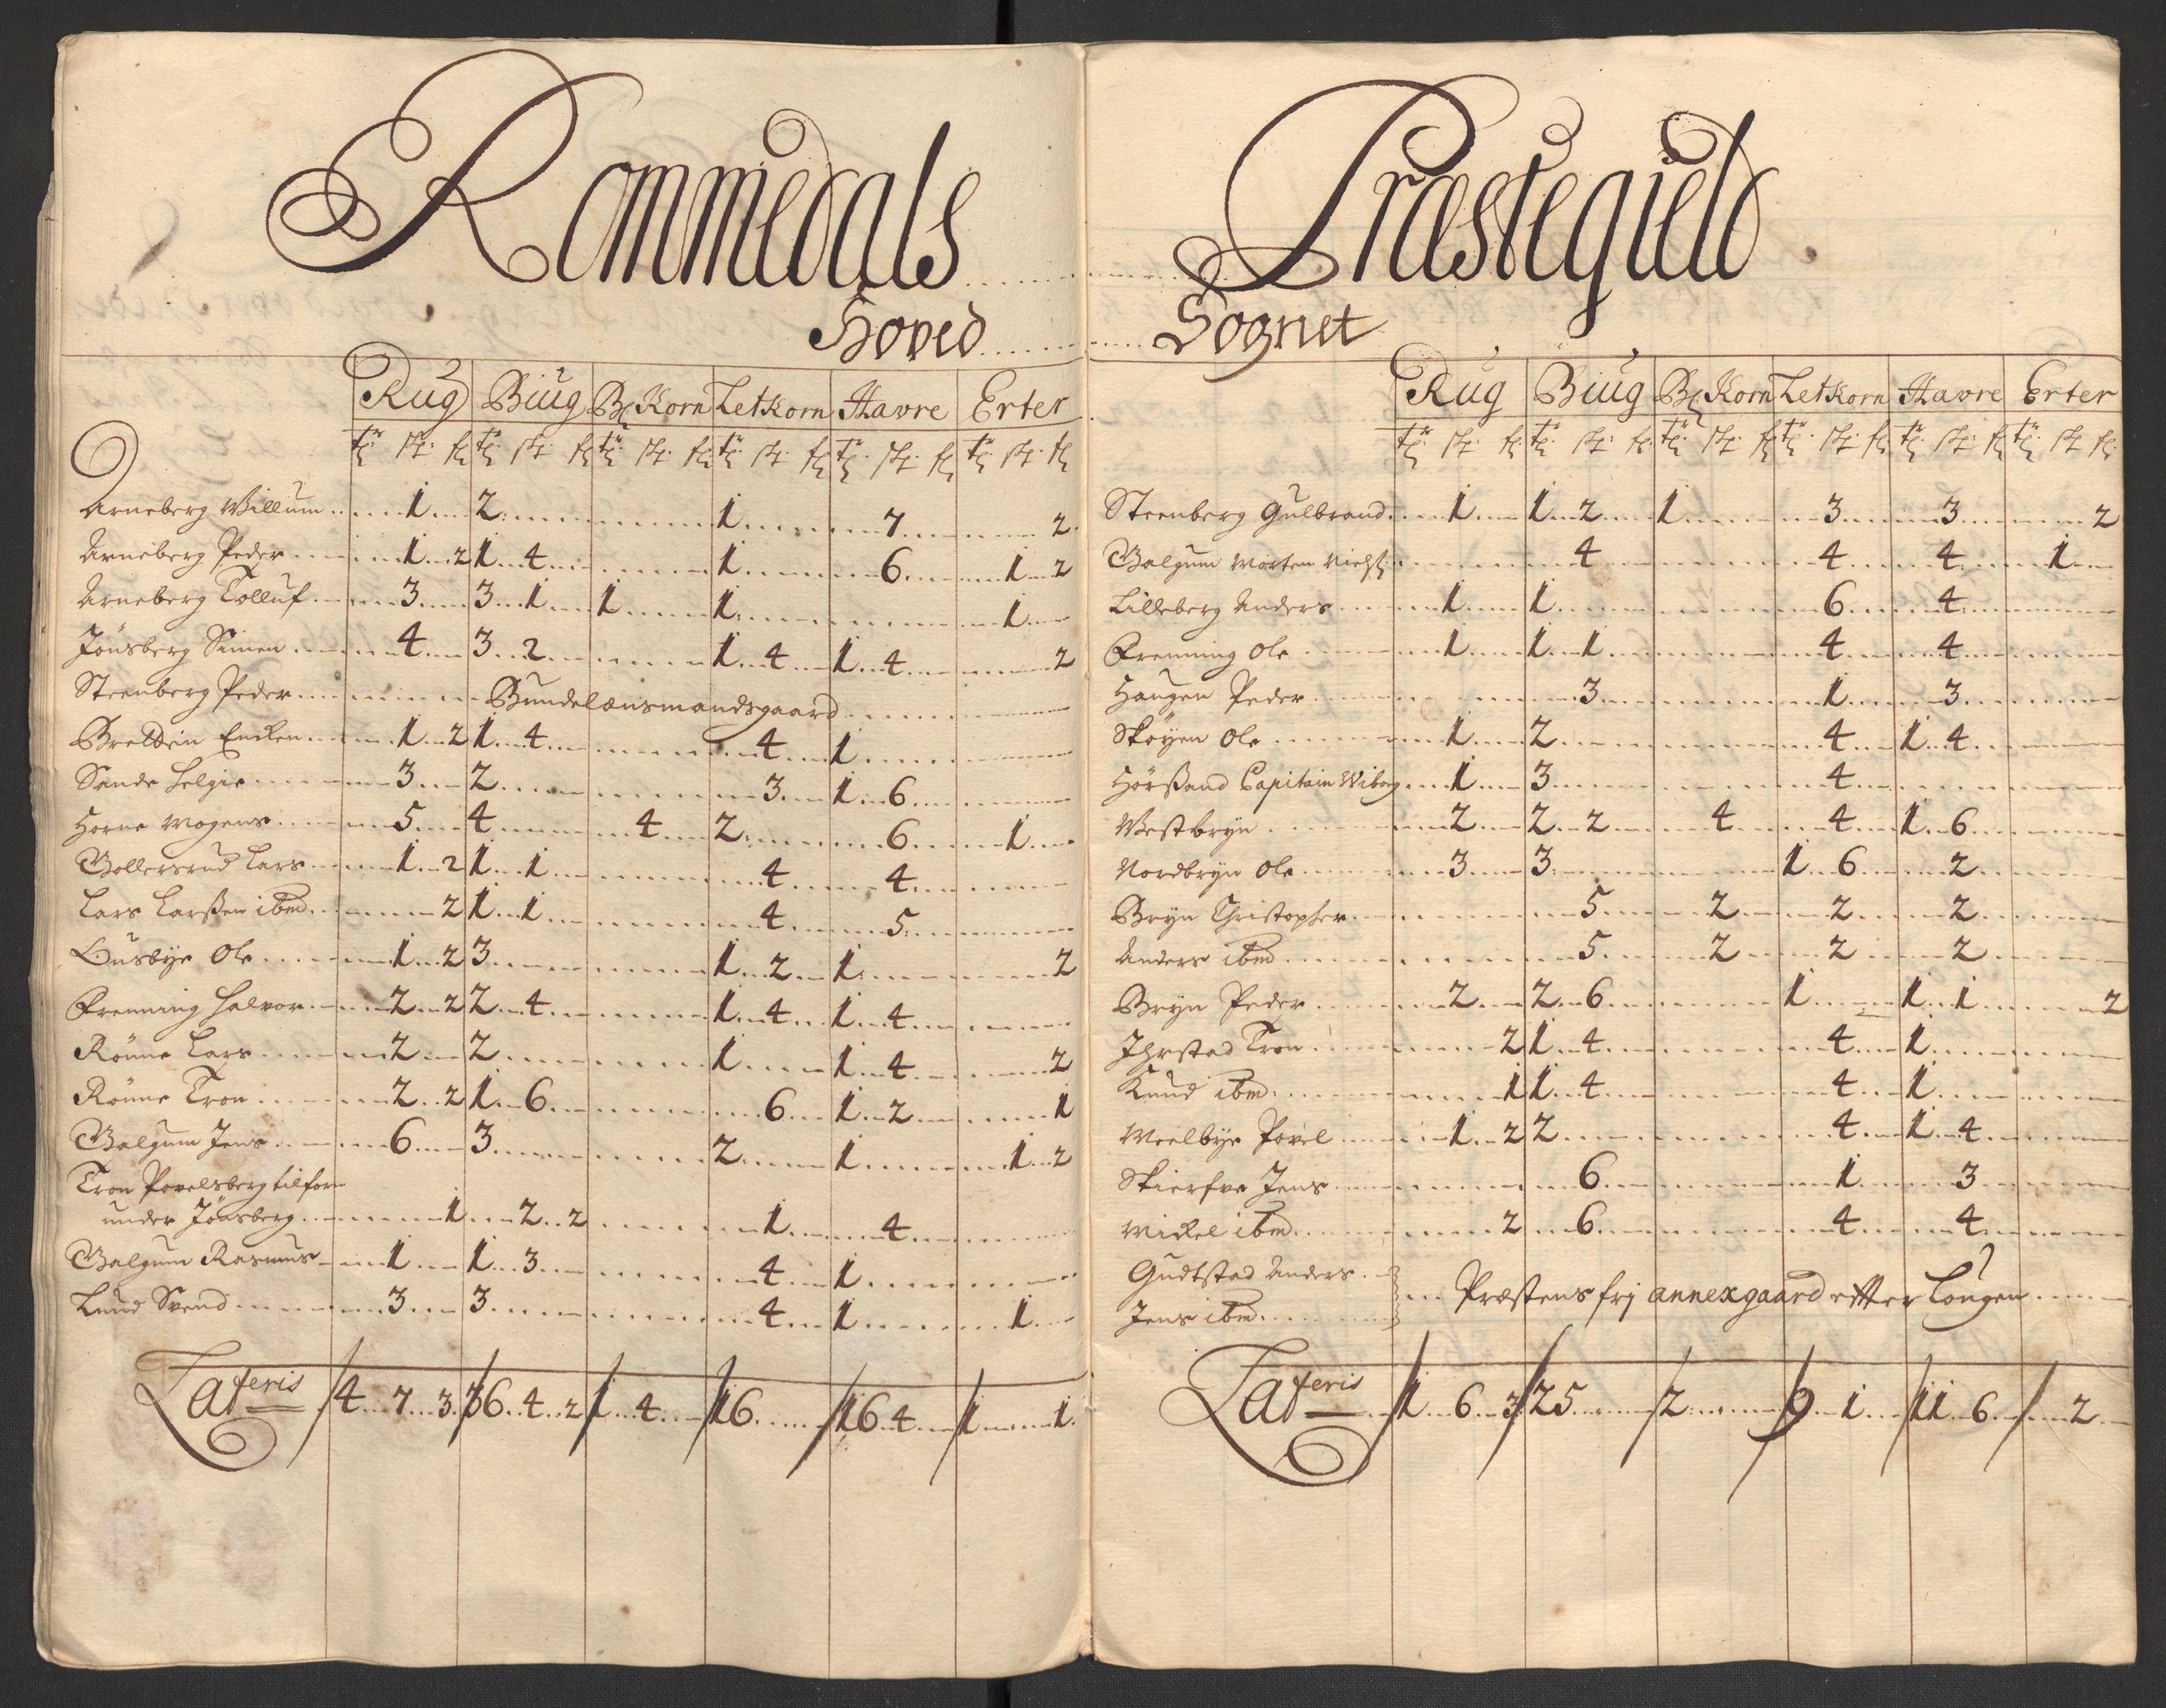 Rommedals
Hoved
Rug Biug Bl Korn Letkorn Havre Erter
tr sk fr tr sk fr tr sk fr tr sk fr tr sk fr tr sk fr
Arneberg Willum 1 2 1 7 2
Arneberg Peder 1 2 1 4 1 6 1 2
Arneberg Tolluf 3 3 1 1 1 1
Jönsberg Simen 4 3 2 1 4 1 4 2
Steenberg Peder Bundelænsmandsgaard
Enken 1 2 1 4 4 1
Sande Helgie 3 2 3 1 6
Horne Mogens 5 4 4 2 6 1
Gollersrud Lars 1 2 1 1 4 4
Lars Larßen ibm 2 1 1 4 5
Huusbye Ole 1 2 3 1 2 1 2
Frenning Halvor 2 2 2 4 1 4 1 4
Rönne Lars 2 2 1 1 4 2
Rönne Tron 2 2 1 6 6 1 2 1
Galgum Jens 6 3 2 1 1 2
Tron Povelsberg tilforn
under Jönsberg 1 2 2 1 4
Galgum Rasmus 1 1 3 4 1
Lund Svend 3 3 4 1 1
Lateris 4 7 3 36 4 2 1 4 16 16 4 1 1
Præstegield
Sognet
Rug Biug Bl Korn Letkorn Havre Erter
tr sk fr tr sk fr tr sk fr tr sk fr tr sk fr tr sk fr
Steenberg Gulbrand 1 1 2 1 3 3 2
Galgum Morten Nielß 4 4 4 1
Lilleberg Anders 1 1 6 4
Frenning Ole 1 1 1 4 4
Haugen Peder 3 1 3
Sköyen Ole 1 2 4 1 4
Hörsand Capitain Wiborg 1 3 4
Westbryn 2 2 2 4 4 1 6
Nordbryn Ole 3 3 1 6 2
Bryn Christopher 5 2 2 2
Anders ibm 5 2 2 2
Bryn Peder 2 2 6 1 1 1 2
Ihrstad Tron 2 1 4 4 1
Knud ibm 1 1 4 4 1
Meelbye Povel 1 2 2 4 1 4
Skierfve Jens 6 1 3
Mickel ibm 2 6 4 4
Gudtstad Anders
Præstens frj annexgaard effter Lougen
Jens ibm
Lateris 11 6 3 25 2 9 1 11 6 2